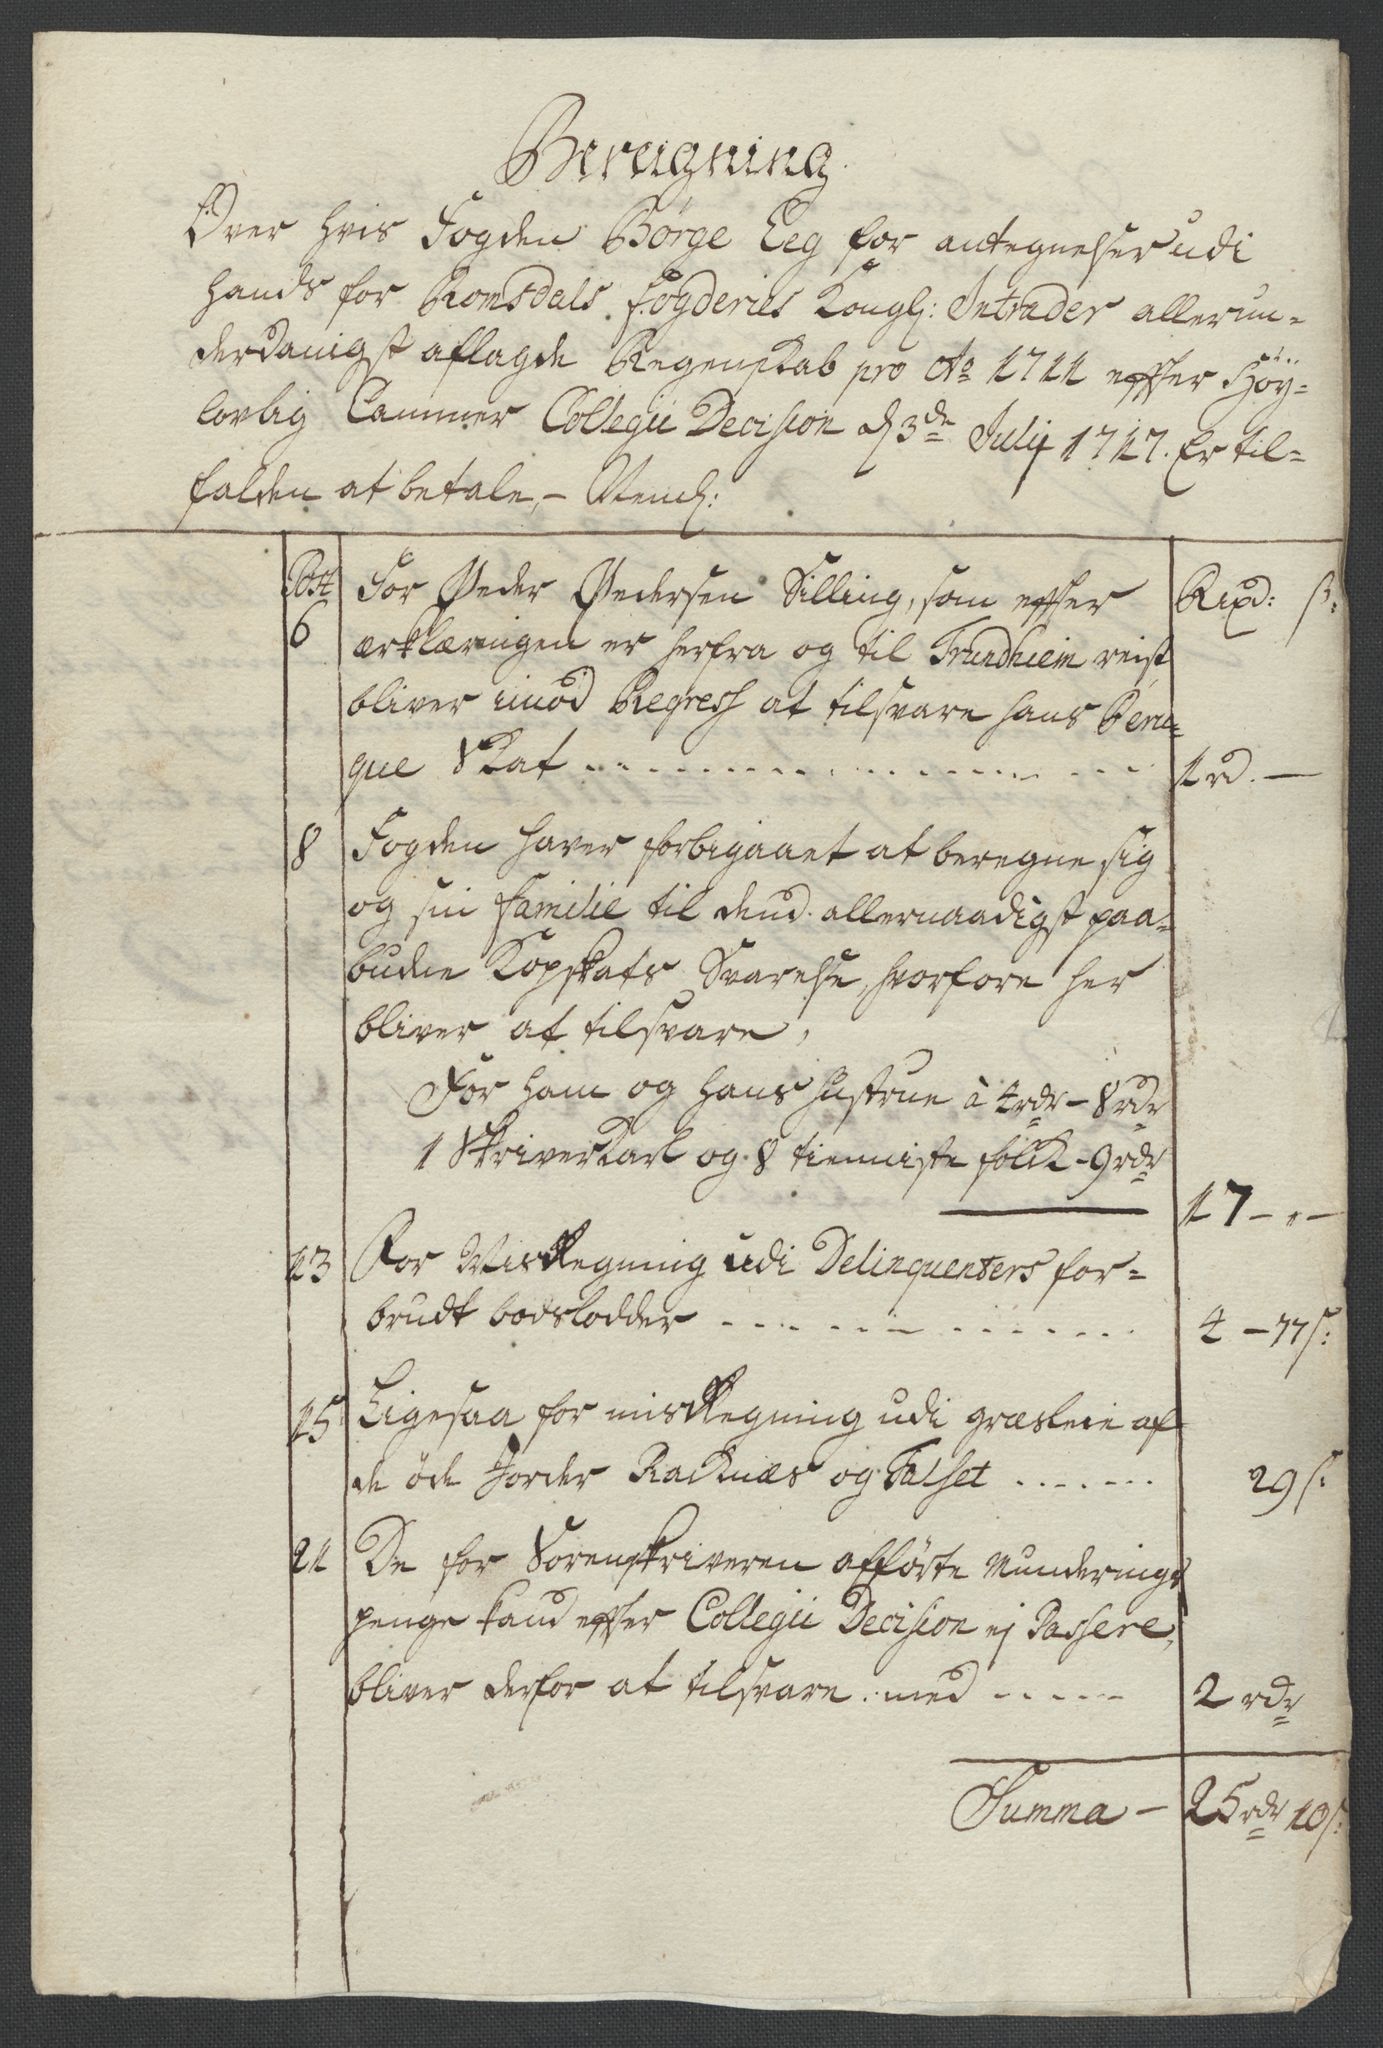 Beregning
Over hvis Fogden Børge Eeg for antegnelser udi
hands for Romsdals Fogderies Kongl: Intrader allerun-
derdanigst aflagde Regenskab pro Ao 1711 effter Høy-
lovlig Cammer Collegii Decision d 3de Julij 1717. Er til-
falden at betale, - Neml:
Post For Peder Pedersen Silling, som effter Rixd: s:
6 erklæringen er herfra og til Trundhiem reist
bliver imod Regress at tilsvare hans Peru-
que Skat 1 rd. —
8 Fogden haver forbigaaet at beregne sig
og sin Familie til dend allernaadigst paa-
budne Kopskats Svarelse, hvorfore her
bliver at tilsvare,
For ham og hans Hustrue à 4 rdr - 8 rdr
1 Skriverkarl og 8 tienniste folck - 9 rdr
17 - " -
13 For Misregning udi Delinquenters for-
brudt boedslodder 4 - 77 s:
15 Ligesaa for misregning udi græsleie af
de öde Jorder Racknæs og Talset 29 s:
21 De for Sorenskriveren afförte Munderings
penge kand effter Collegii Decision ej Passere,
bliver derfor at tilsvare med 2 rdr
Summa - 25 rdr 10 s: